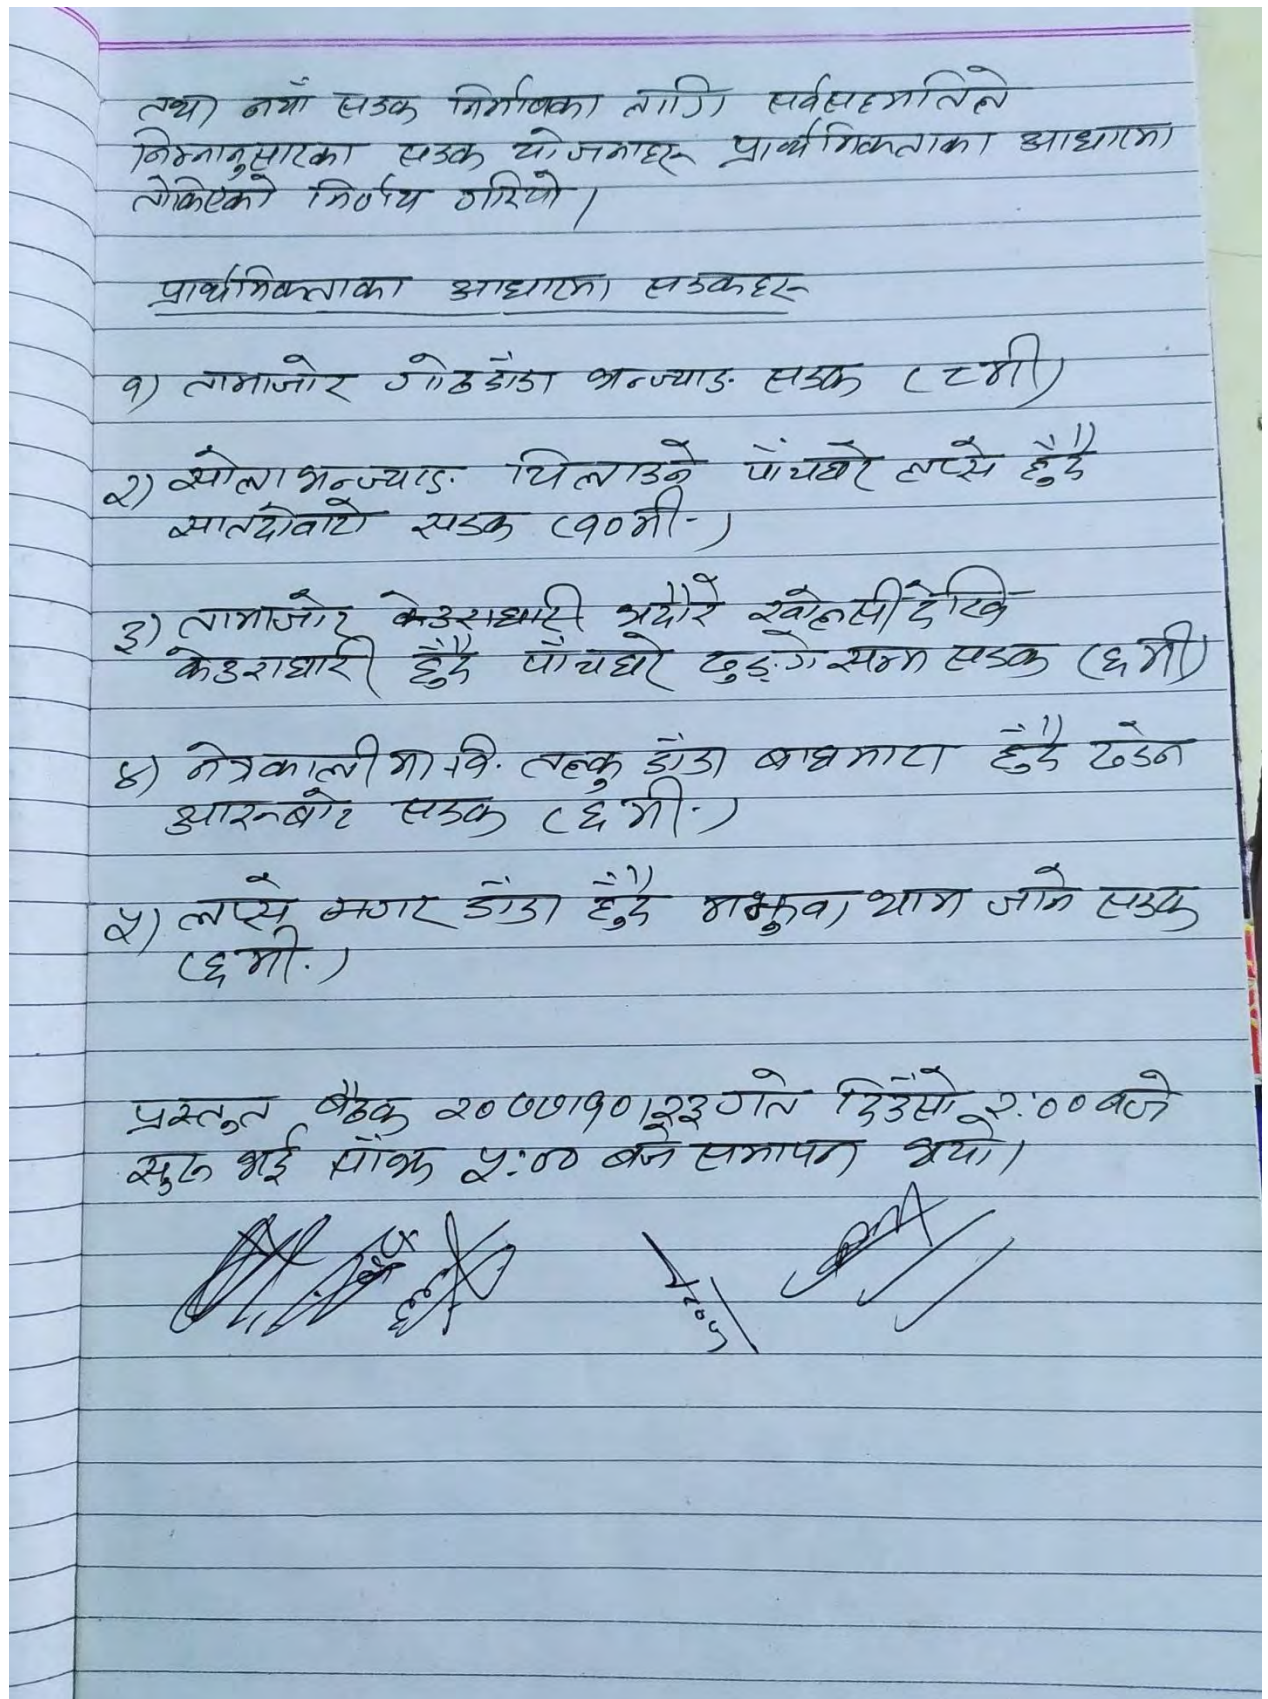 तथा नयाँ सडक निर्माणका लागि सर्वसहमतिले
निम्नानुसारका सडक योजनाहरु प्राथमिकताका आधारमा
तोकिएको निर्णय गरियो।
प्राथमिकताका आधारमा सडकहरु
१) तामाजोर गोठडाँडा भन्ज्याङ सडक (८मी)
२) सोलाभन्ज्याङ चिलाउने पाँचघरे लप्से हुँदै
सातदोवाटो सडक (१०मी.)
३) तामाजोर केउराघारी भदौरे खोल्सीदेखि
केउराघारी हुँदै पाँचघरे ढुङ्गे सम्म सडक (६मी)
४) नेत्रकाली मा.वि. तल्कु डाँडा बाघमारा हुँदै ठडेन
आरुबोट सडक (६मी.)
५) लप्से मगर डाँडा हुँदै मझुवा थाम जाने सडक
(६मी.)
प्रस्तुत बैठक २०७७।१०।२३ गते दिउँसो २:०० बजे
सुरु भई साँझ ५:०० बजे समापन भयो।